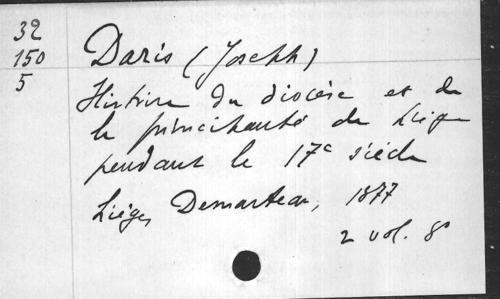 32
150
5
Daris (Joseph)
Histoire du diocèse et de
la principauté de Liège
pendant le 17e siècle
Liège, Demarteau, 1877
2 vol. 8°